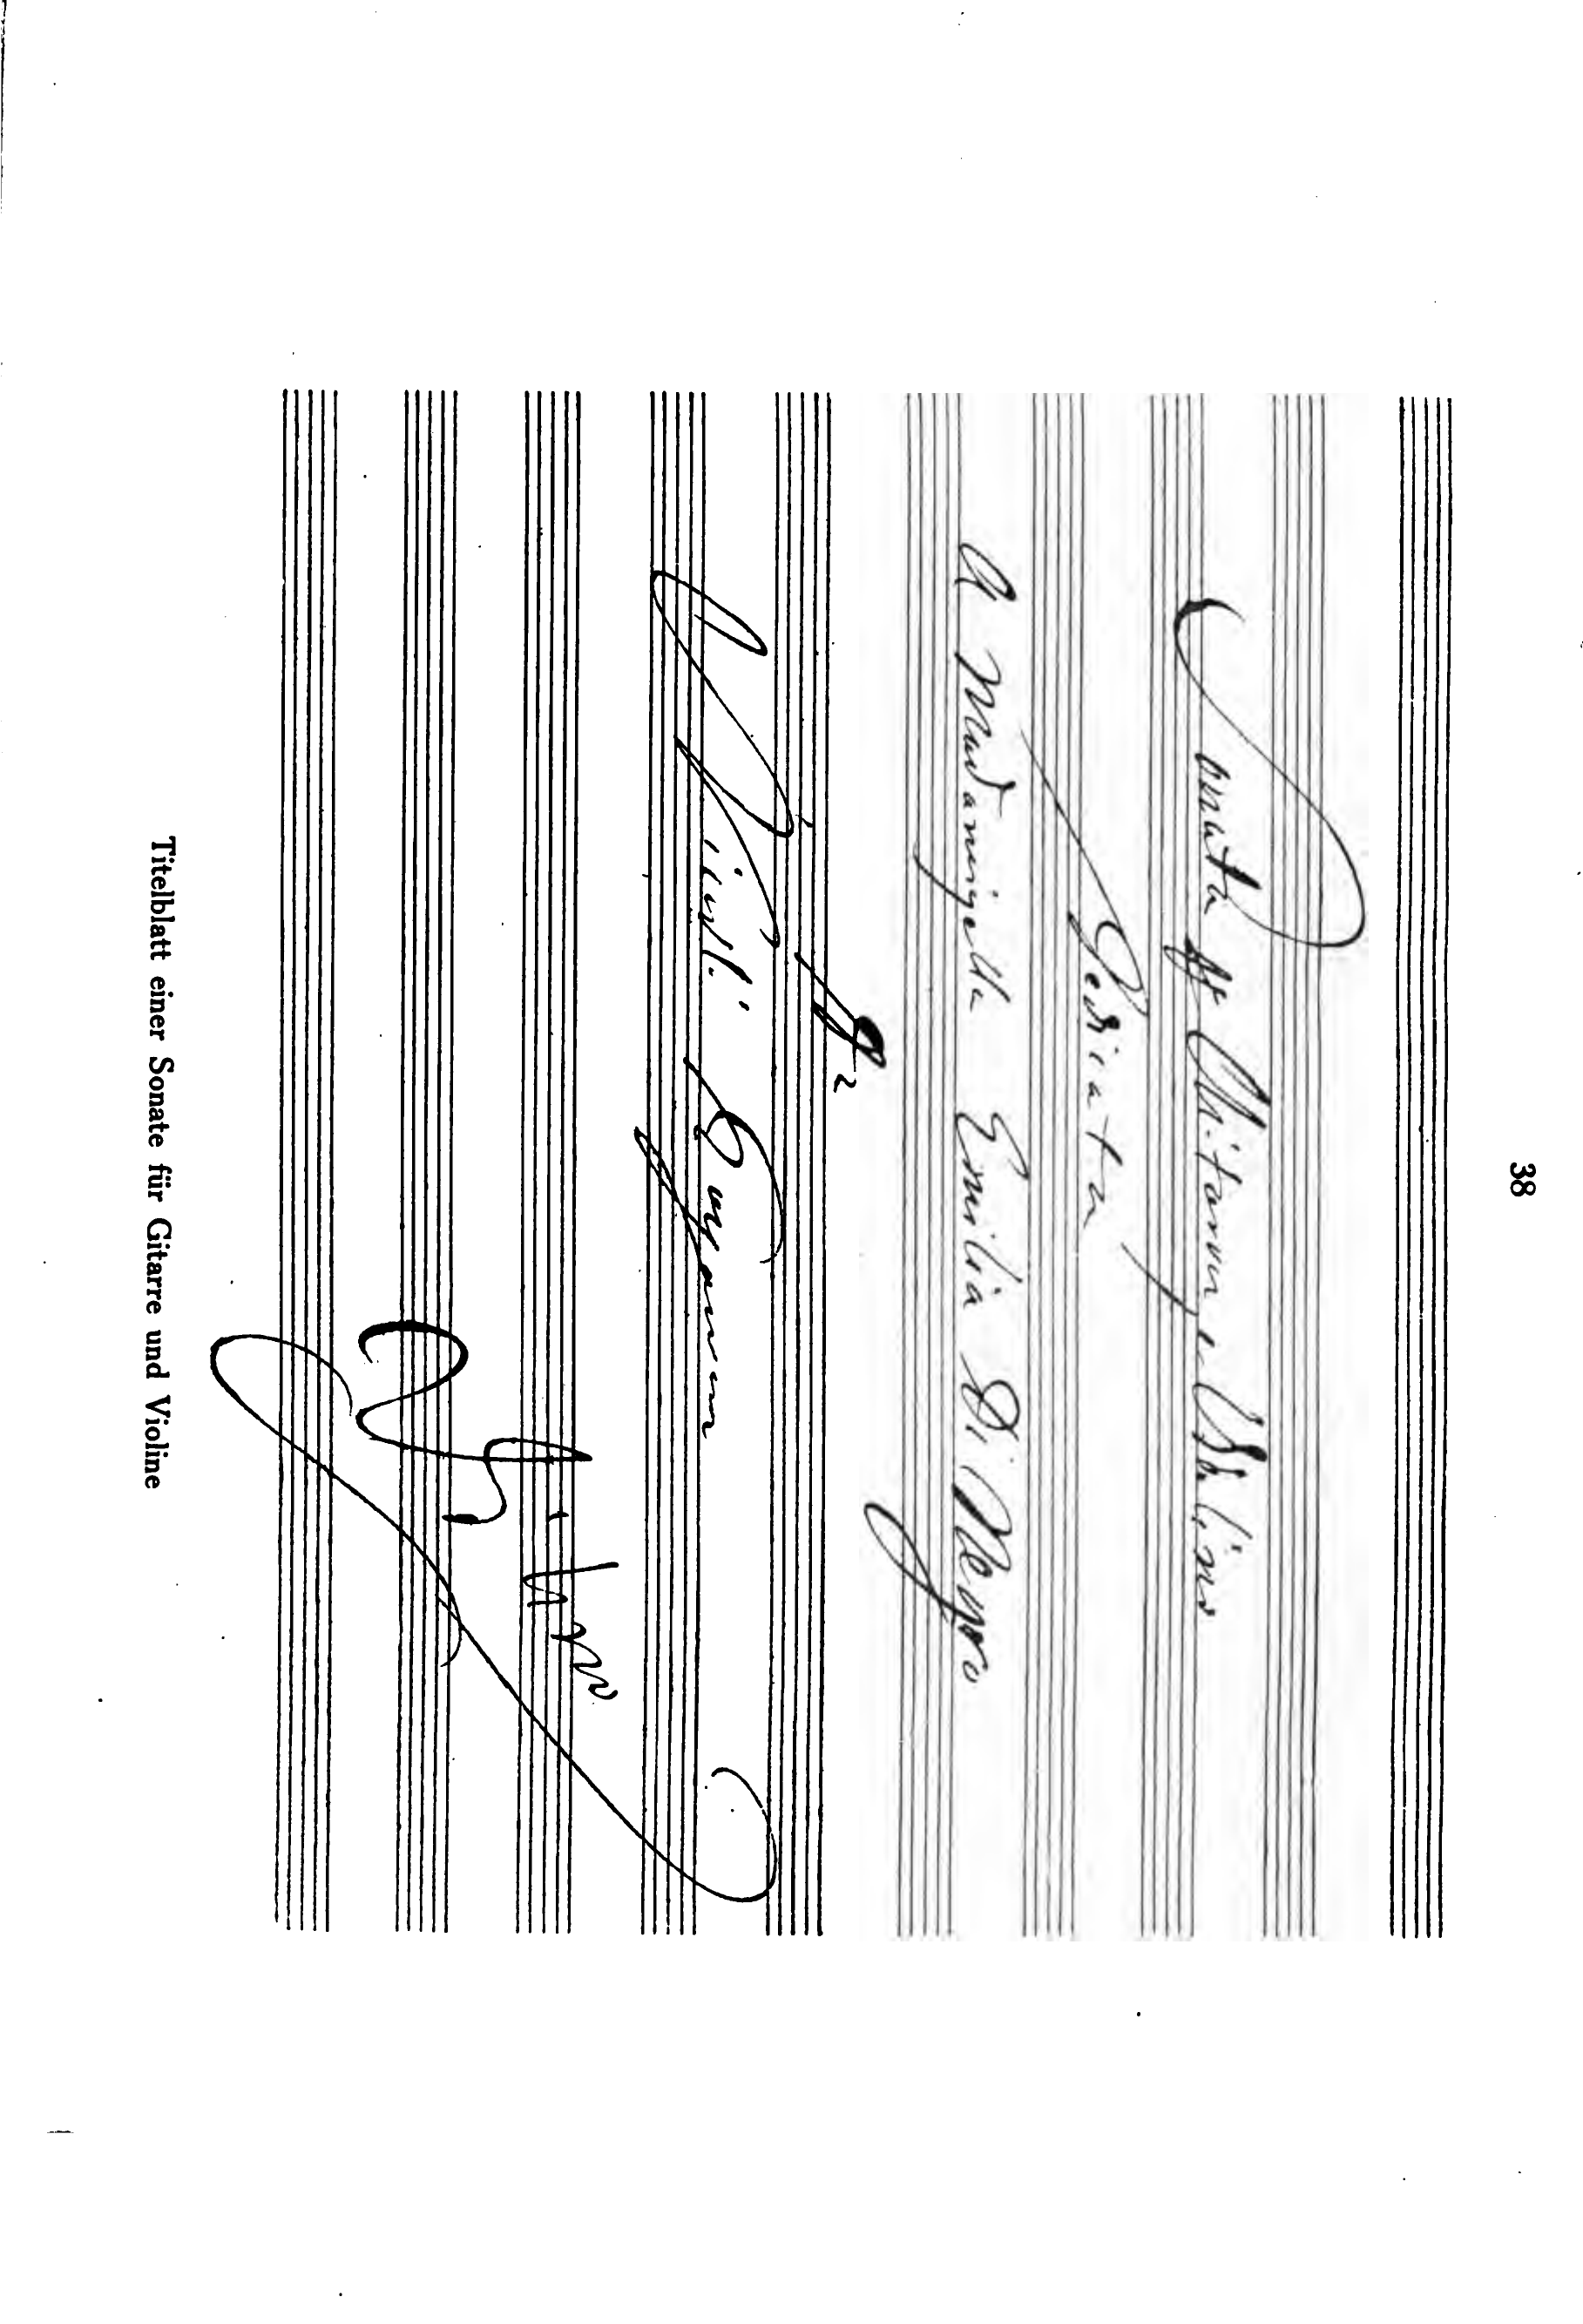 38
Sonata p Chitarra, e Violino
Dedicata
A Madamigella Emilia Di Negro
Da
Nicolò Paganini
Titelblatt einer Sonate für Gitarre und Violine